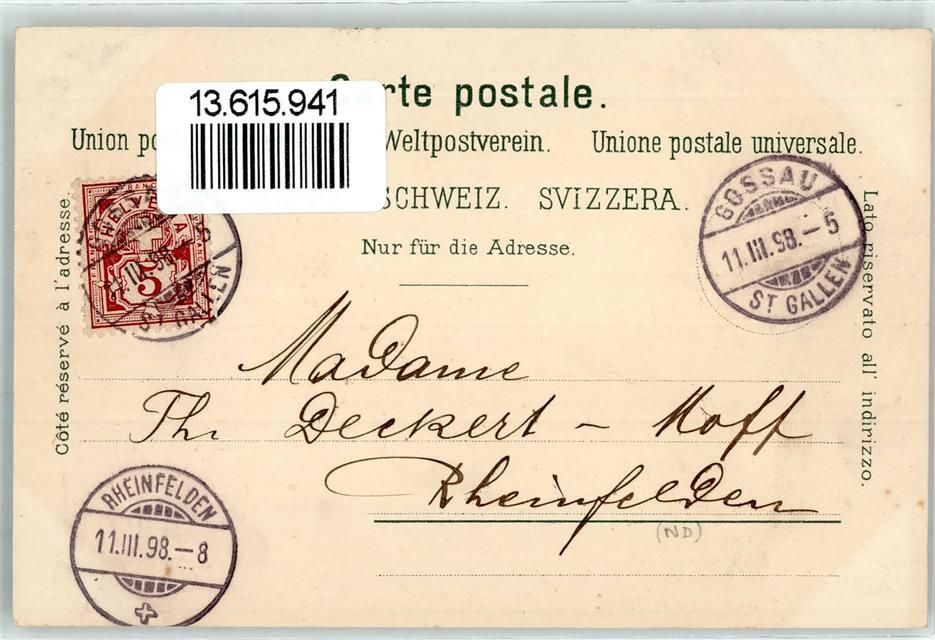 13.615.941
Carte postale.
Union Weltpostverein. Unione postale universale.
SCHWEIZ. SVIZZERA.
Nur für die Adresse.
Côté réservé à l'adresse.
Lato riservato all' indirizzo.
HELVETIA
FRANCO
5
11.III.98.-5
ST GALLEN
GOSSAU
11.III.98.-5
ST GALLEN
Madame
Th. Deckert - Hoff
Rheinfelden
(ND)
RHEINFELDEN
11.III.98.-8